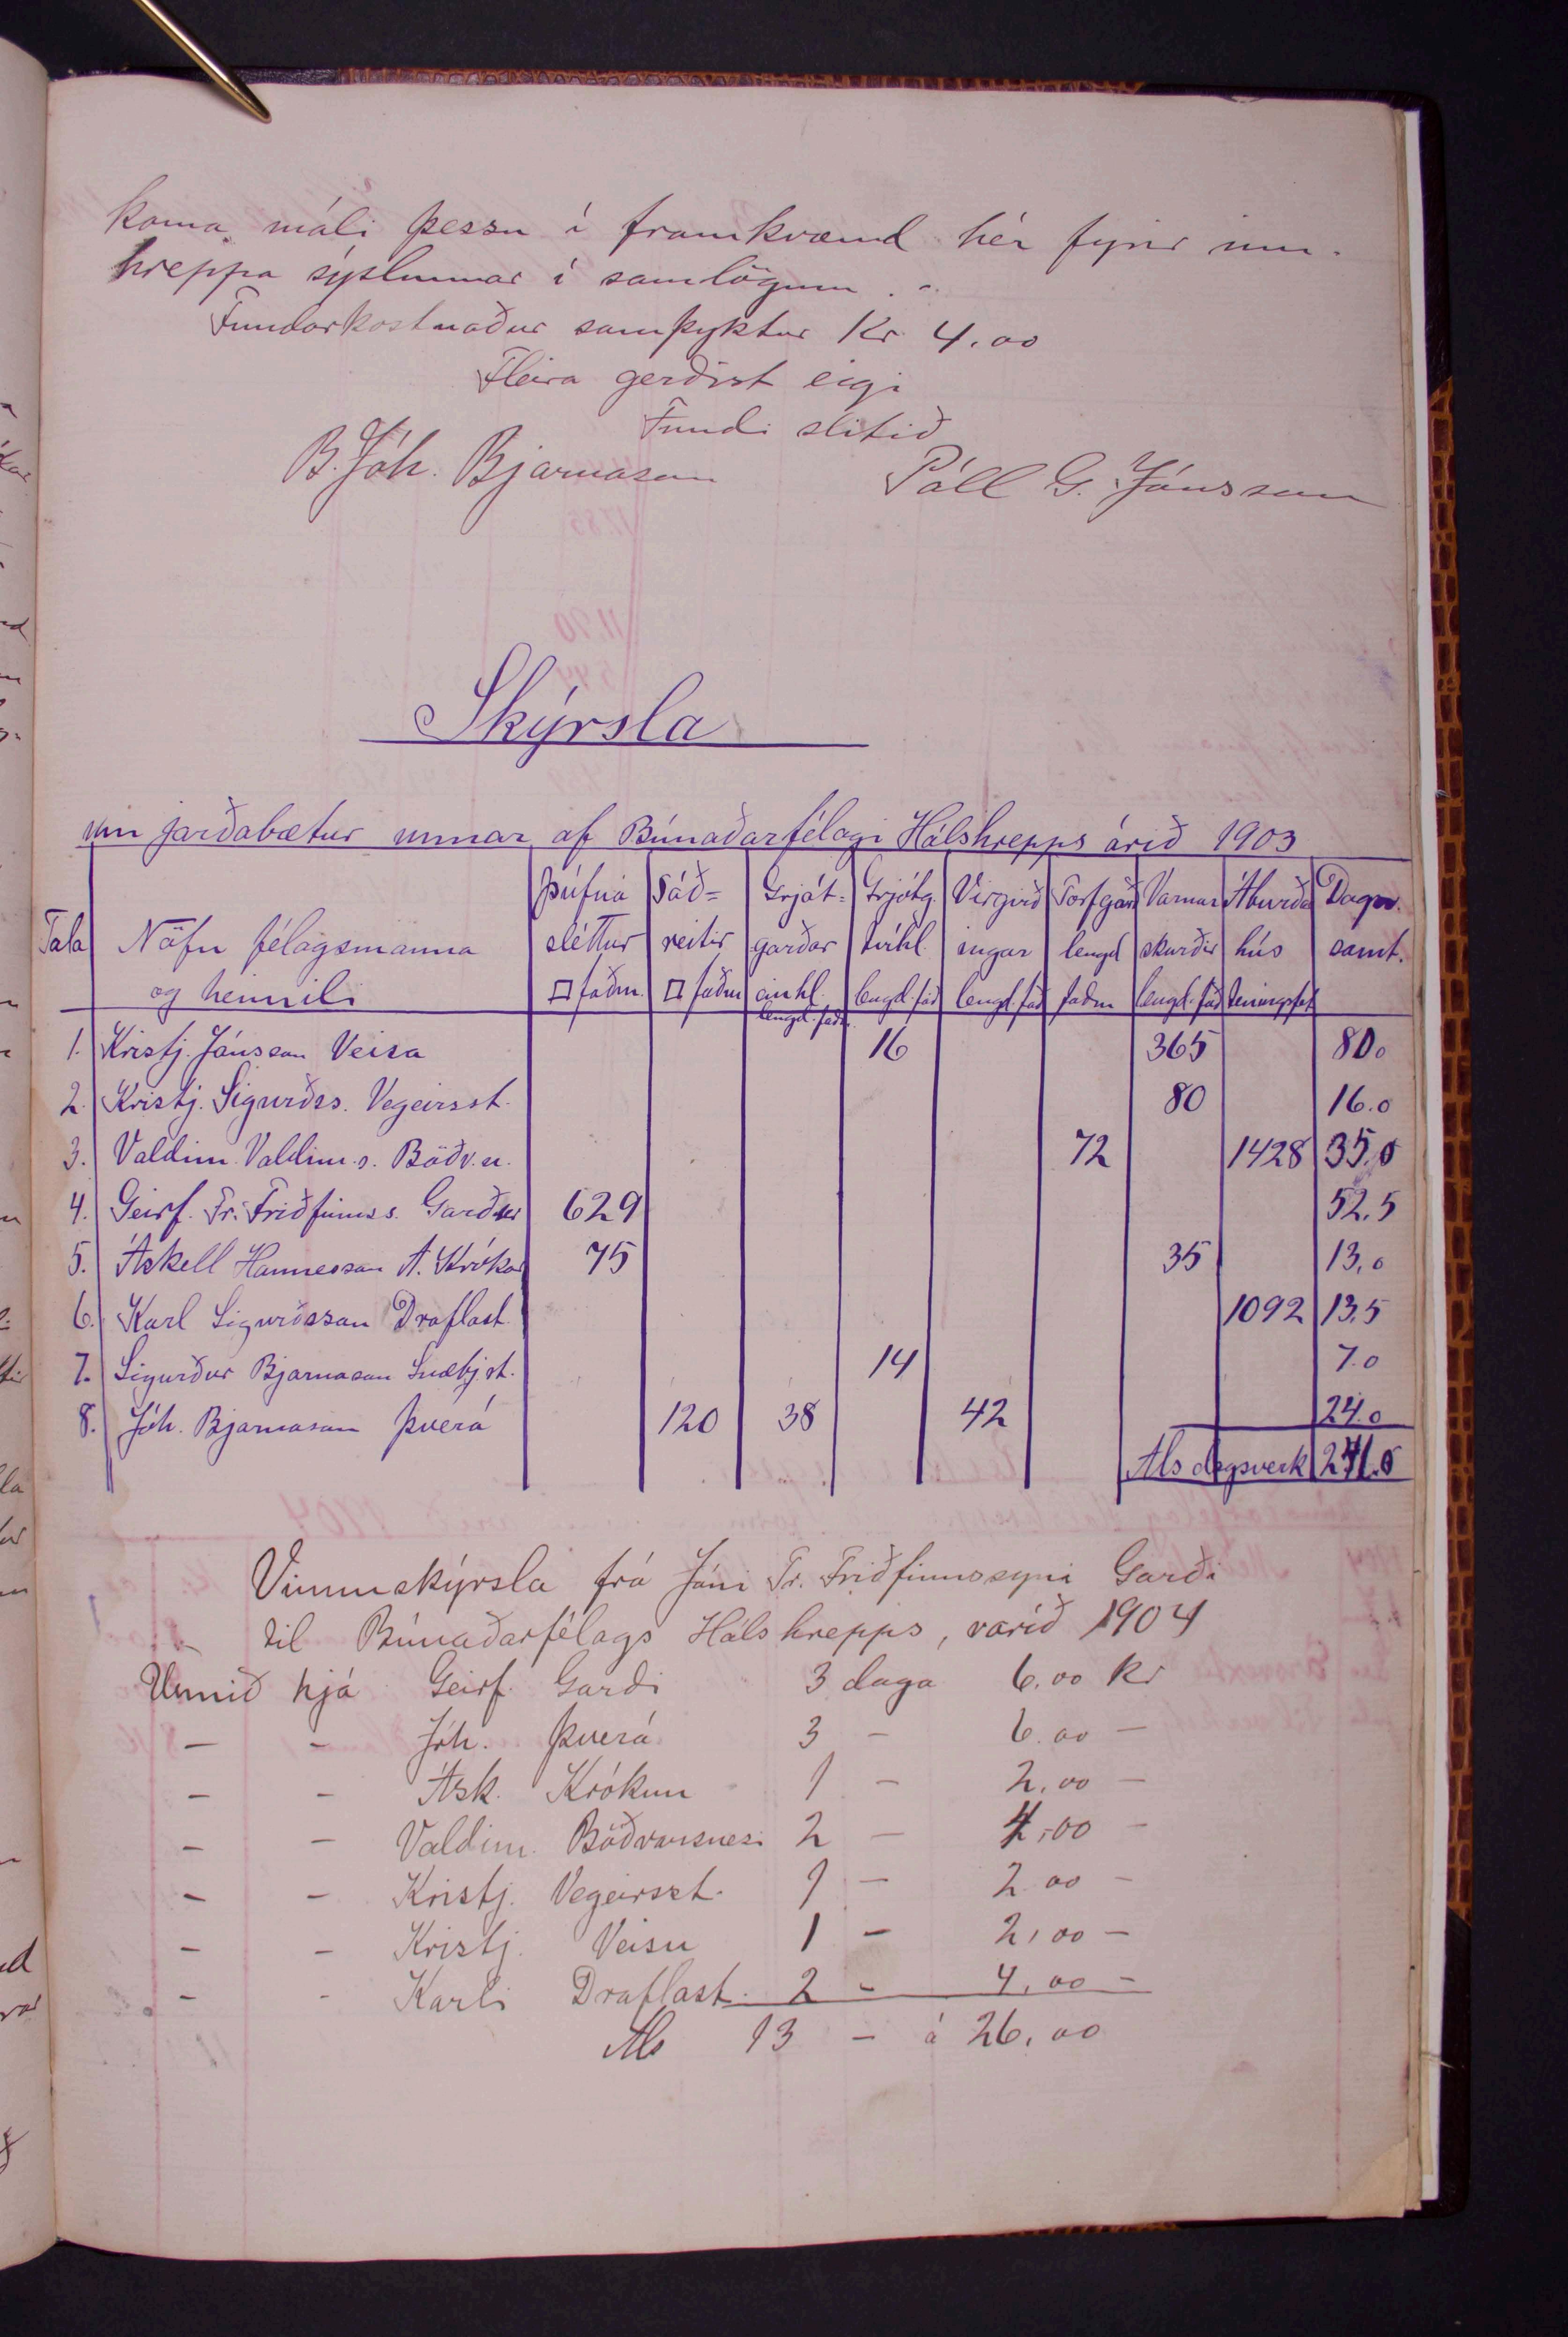 koma máli þessu í framkvæmd hér fyrir inn-
hreppa sýslunnar í samlögum.
Fundarkostnaður samþyktur Kr 4.00
Fleira gerðist eigi
Fundi slitið
B. Jóh. Bjarnason Páll G. Jónsson
Skýrsla
um jarðabætur unnar af Búnaðarfélagi Hálshrepps árið 1903
Tala Nöfn félagsmanna og heimili Þúfna sléttur □ faðm. Sáð= reitir □ faðm Grjót= garðar einhl. lengd. faðm. Grjótg. tvíhl. lengd. fað Virgirð ingar lengd. fað Torfgarð lengd faðm Varnar skurðir lengd. fað Áburða hús teningsfet Dagsv. samt.
1. Kristj. Jónsson Veisa 16 365 80.0
2. Kristj. Sigurðss. Vegeirsst. 80 16.0
3. Valdim. Valdim.s. Böðv.n. 72 1428 35.0
4. Geirf. Tr. Friðfinnss. Garður 629 52.5
5. Áskell Hannesson A. Krókar 75 35 13.0
6. Karl Sigurðsson Draflast. 1092 13.5
7. Sigurður Bjarnason Snæbj.st. 14 7.0
8. Jóh. Bjarnason Þverá 120 38 42 24.0
Als dagsverk 241.0
Vinnuskýrsla frá Jóni Tr. Friðfinnssyni Garði
til Búnaðarfélags Hálshrepps, vorið 1904
Unnið hjá Geirf. Garði 3 daga 6.00 kr
— - Jóh. Þverá 3 - 6.00 —
- - Ásk. Krókum 1 - 2.00 —
- - Valdim. Böðvarsnesi 2 - 4.00 -
- - Kristj. Vegeirsst. 1 - 2.00 -
- - Kristj. Veisu 1 - 2.00 -
- - Karli Draflast. 2 - 4.00 -
Als 13 - á 26.00